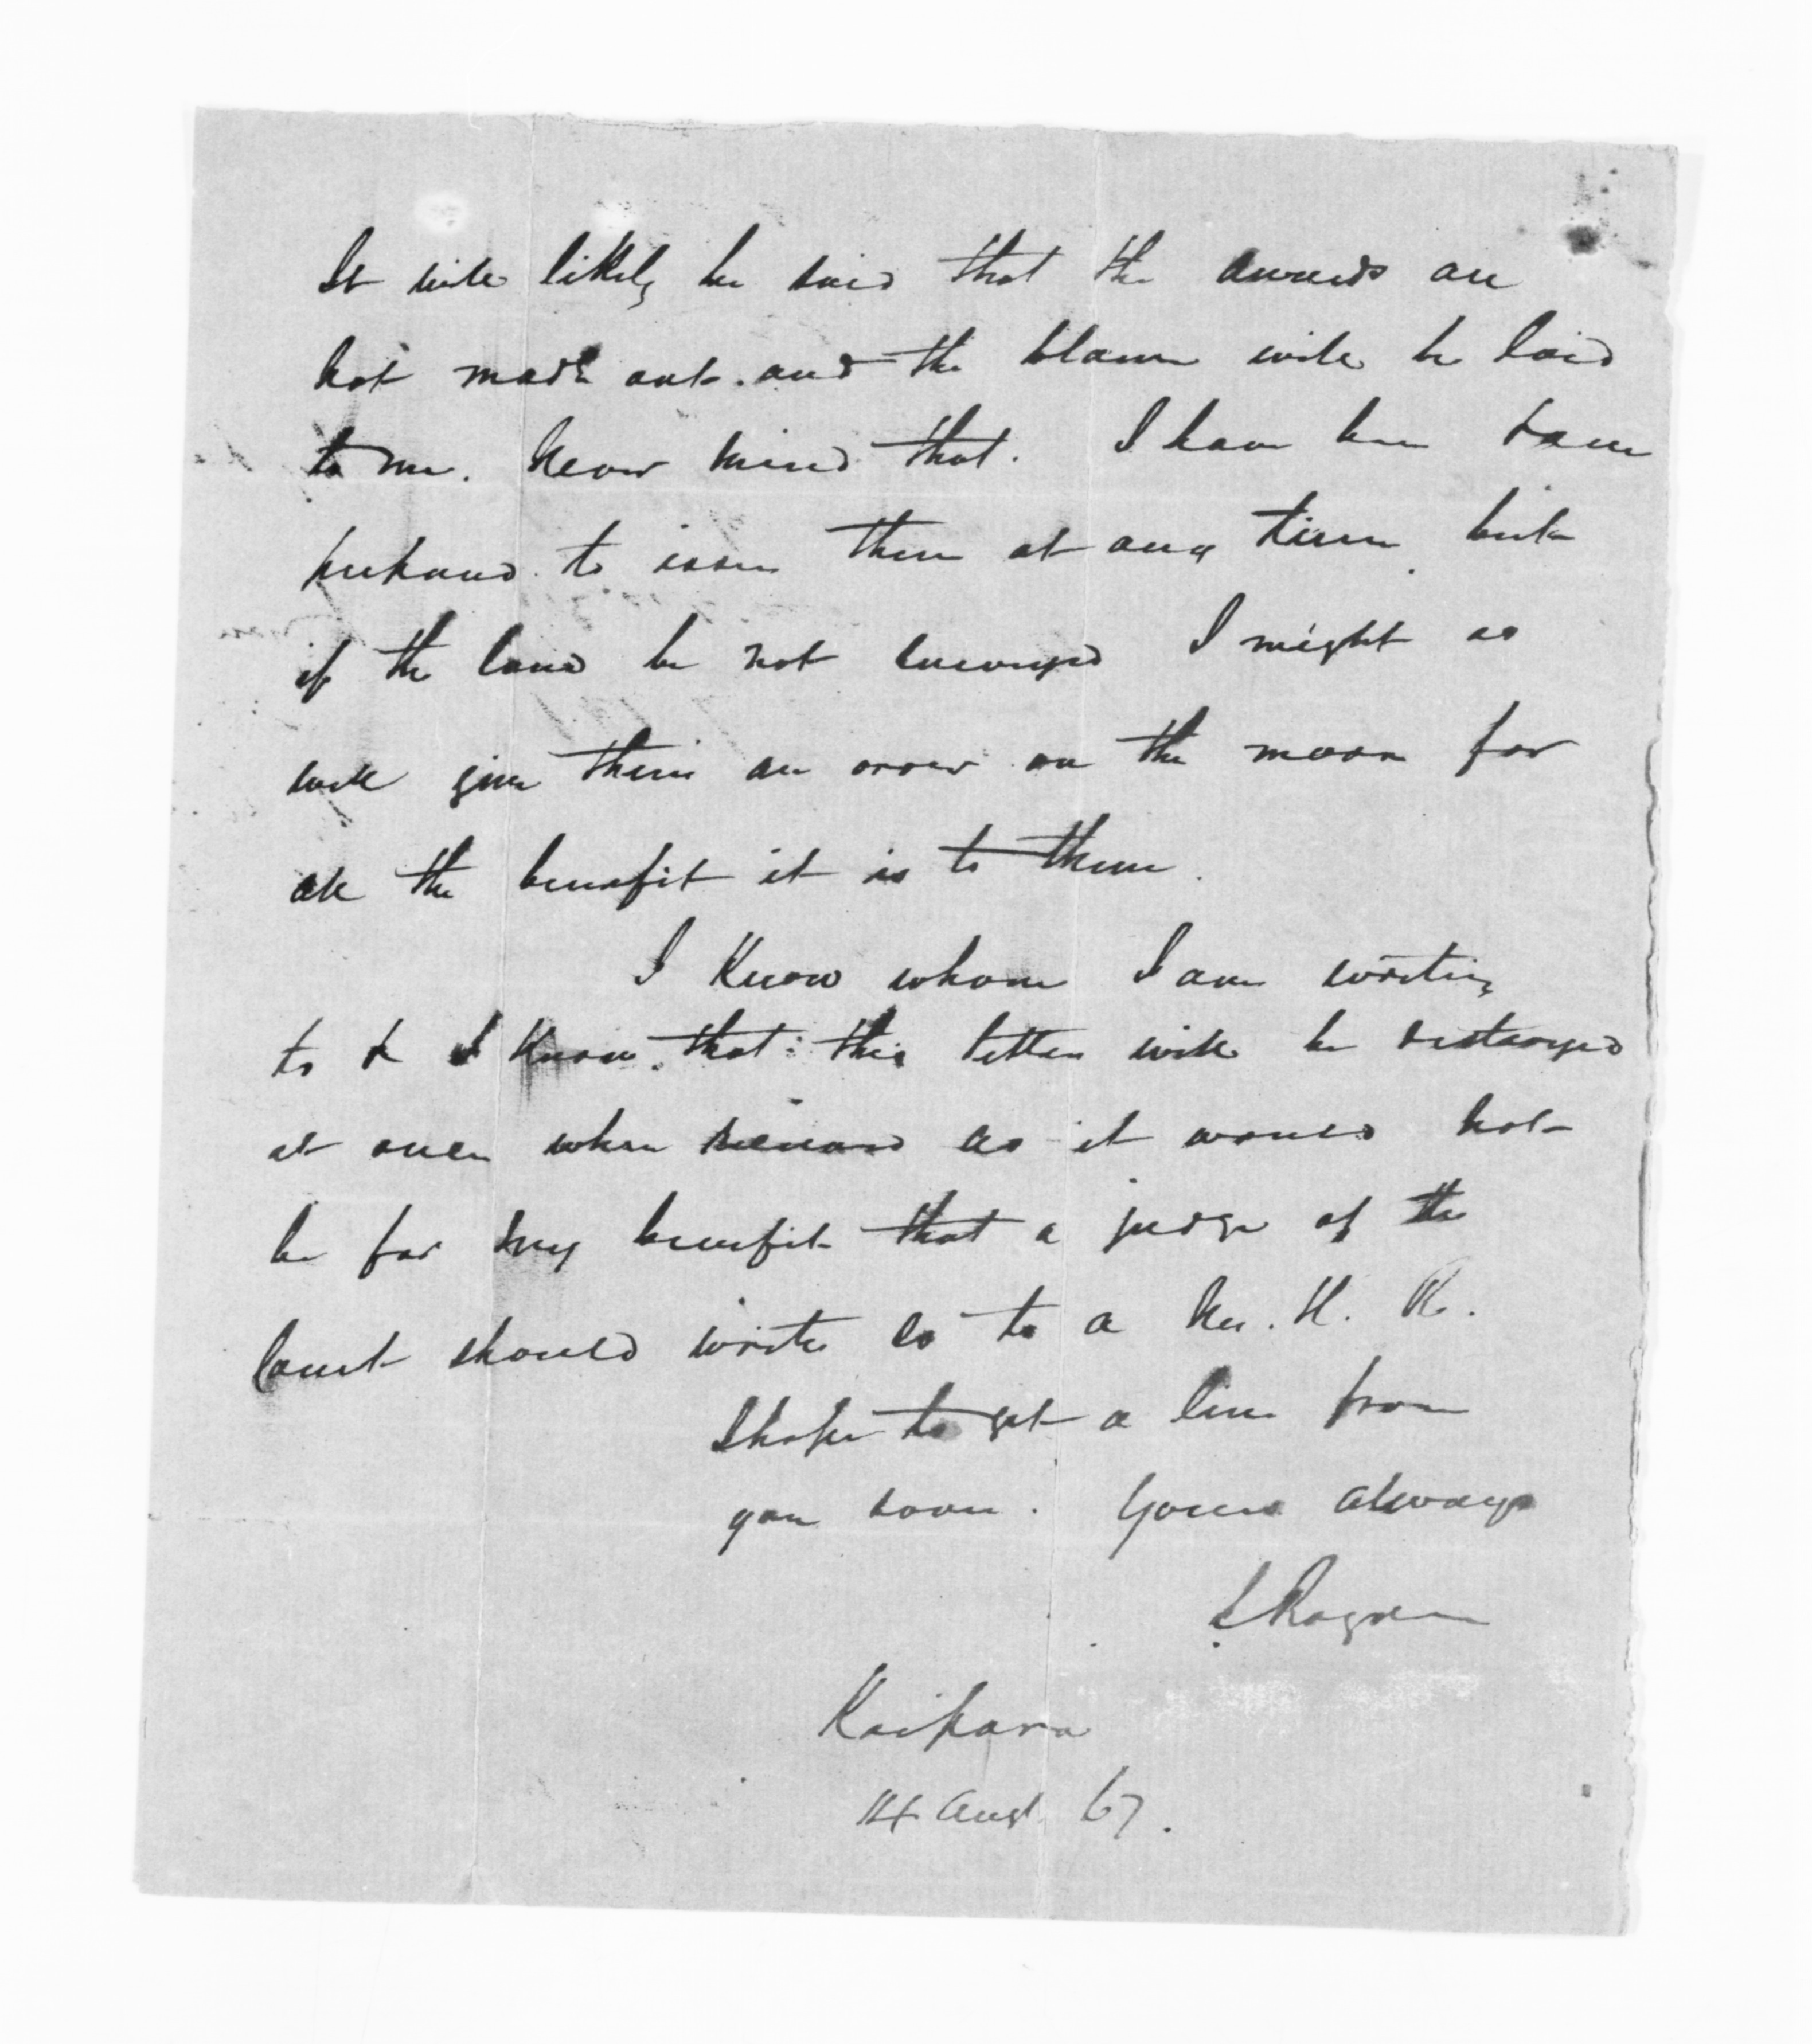 It will likely be said that the awards are
not made out. and the blame will be laid
to me. Never mind that. I have been
prepared to issue them at any time but
if the land be not surveyed I might as
well give them an order on the moon for
all the benefit it is to them.
I know whom I am writing
to & I know that this letter will be destroyed
at once when received as it would not
be for my benefit that a judge of the
Court should write so to a M. H. R.
I hope to get a line from
you soon. Yours always
J Rogan
Kaipara
14 Augt 67.